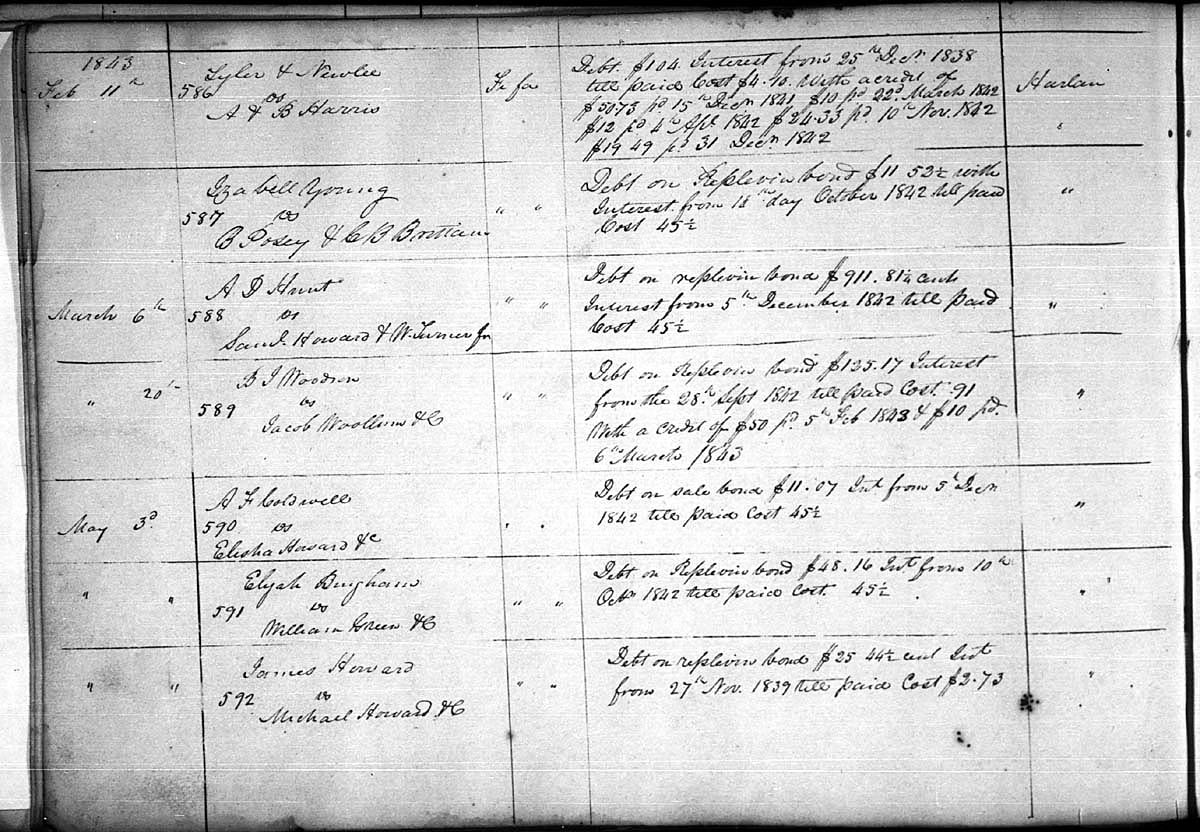 1843
Feb 11th
586 Tyler & Newlee
vs
A & B Harris
Fi fa
Debt $104 Interest from 25th Decr 1838
till paid Cost $4.40. With a credit of
$50.73 pd 15th Decr 1841 $10 pd 22d March 1842
$12 pd 4th Apl 1842 $24.33 pd 10th Nov. 1842
$19 49 pd 31 Decr 1842
Harlan
"
587 Izabell Young
vs
B Posey & C B Brittain
" "
Debt on Replevin bond $11 52½ with
Interest from 18th day October 1842 till paid
Cost 45½
"
March 6th
588 A D Hunt
vs
Saml. Howard & W. Turner Jr
" "
Debt on replevin bond $911.81¼ cents
Interest from 5th December 1842 till paid
Cost 45½
"
" 20th
589 B J Woodson
vs
Jacob Woollums &C
" "
Debt on Replevin bond $125.17 Interest
from the 28th Sept 1842 till paid Cost. 91
With a credit of $50 pd. 5th Feb 1843 & $10 pd.
6th March 1843
"
May 3d
590 A F Coldwell
vs
Elisha Howard &c
" "
Debt on sale bond $11.07 Int from 5th Decr
1842 till paid Cost 45½
"
" "
591 Elijah Bingham
vs
William Green &C
" "
Debt on Replevin bond $48.16 Int from 10th
Octr 1842 till paid Cost. 45½
"
" "
592 James Howard
vs
Michael Howard &C
" "
Debt on replevin bond $25 44½ cent Int
from 27th Nov. 1839 till paid Cost $2.73
"